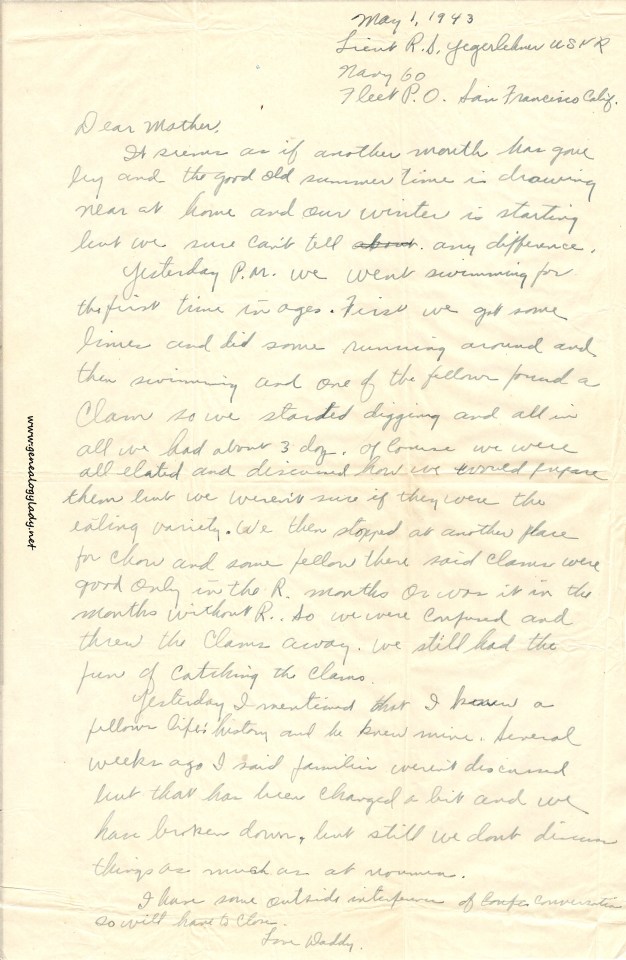 May 1, 1943
Lieut R.S. Yegerlehner USNR
Navy 60
Fleet P.O. San Francisco Calif.
Dear Mother.
It seems as if another month has gone
by and the good old summer time is drawing
near at home and our winter is starting
but we sure can't tell about. any difference.
Yesterday P.M. we went swimming for
the first time in ages. First we got some
limes and did some running around and
then swimming and one of the fellows found a
Clam so we started digging and all in
all we had about 3 doz. Of course we were
all elated and discussed how we would prepare
them but we weren't sure if they were the
eating variety. We then stopped at another place
for chow and some fellow there said Clams were
good only in the R. months or was it in the
months without R.. So we were confused and
threw the Clams away. We still had the
fun of catching the clams.
Yesterday I mentioned that I knew a
fellows life's history and he knew mine. Several
weeks ago I said families weren't discussed
but that has been changed a bit and we
have broken down, but still we dont discuss
things as much as at
I have some outside interference of conversation
so will have to close.
Love Daddy.
www.genealogylady.net